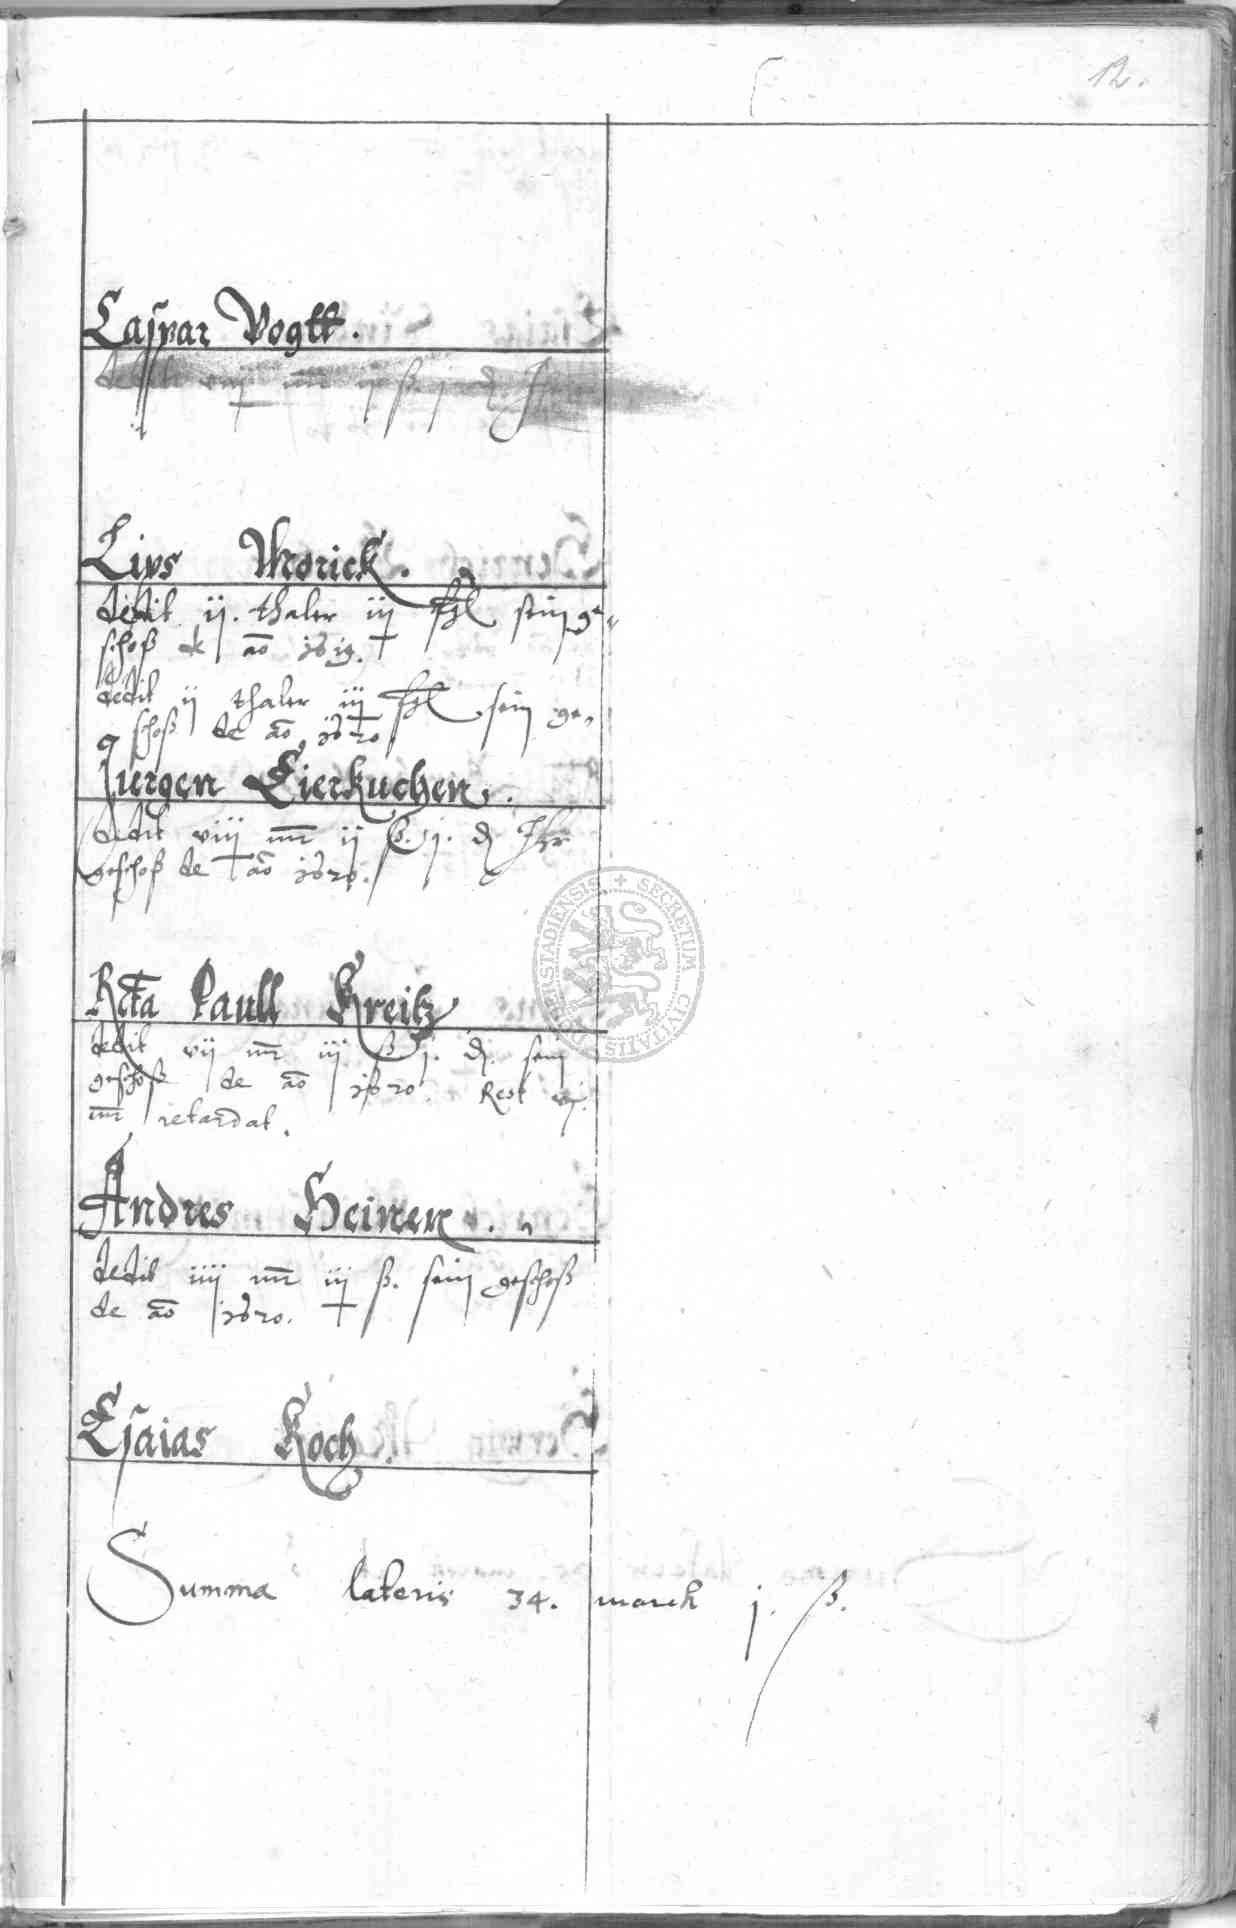 12.
Caspar Vogtt.
dedit viij mr ij ß. j d
Lips Morick.
dedit ij. thaler iij sein ge„
schoß de ao 1619.
dedit ij thaler iij sein ge„
schoß de ao 1620
Jurgen Eierkuchen.
dedit viii mr ii ß. j. d Ihr
geschoß de ao 1620.
Rcta Paull Kreitz
dedit vij mr iij ß j. d. sein
geschoß de ao 1620. Rest
mr retardat.
Andres Heinen.
dedit iiij mr iij ß. sein geschoß
de ao 1620.
Esaias Koch.
Summa lateris 34. march j. ß.
SECRETUM CIVITATIS DUDERSTADIENSIS